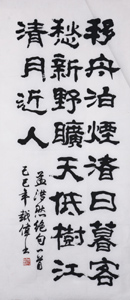 移舟泊煙渚日暮客
愁新野曠天低樹江
清月近人
孟浩然絕句一首
己巳年偉書